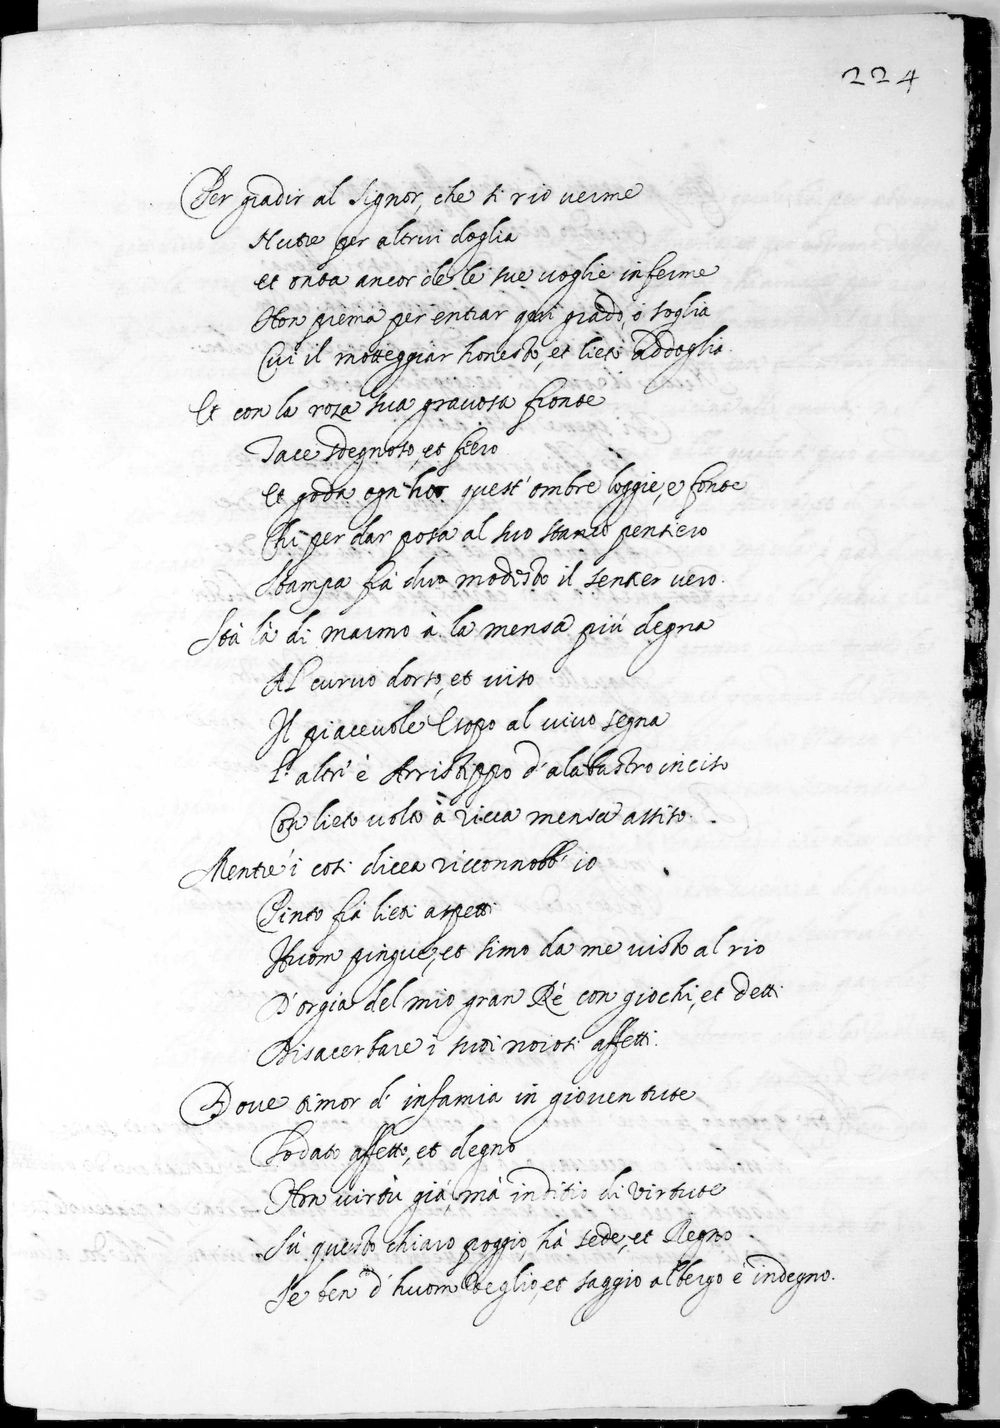 224
Per gradir al Signor, che si rio verme
Nutre per altrui doglia
et onta ancor de le sue voglie inferme
Non prema per entrar qui grado, ò soglia
Cui il motteggiar honesto, et lieto addoglia.
Et con la roza sua gravosa fronte
Tace sdegnoso, et fiero
Et goda ogn'hor quest'ombre loggie, e fonte
Chi per dar posa al suo stanco pensiero
Stampa frà duo modesto il sentier vero.
Stà là di marmo à la mensa più degna
Al curvo dorso, et viso
Il piacevole Esopo al vivo segna
L'altr'è Arristippo d'alabastro inciso
Con lieto volto à ricca mensa assiso.
Mentr'i così dicea riconnobb'io
Pinto frà lieti aspetti
Huom pingue, et simo da me visto al rio
D'orgia del mio gran Rè con giochi, et detti
Disacerbare i suoi noiosi affetti.
Dove timor d'infamia in gioventute
Lodato affetto, et degno
Non virtù già, mà inditio di virtute
Sù questo chiaro poggio, hà sede, et Regno
Se ben d'huom veglio, et saggio albergo è indegno.